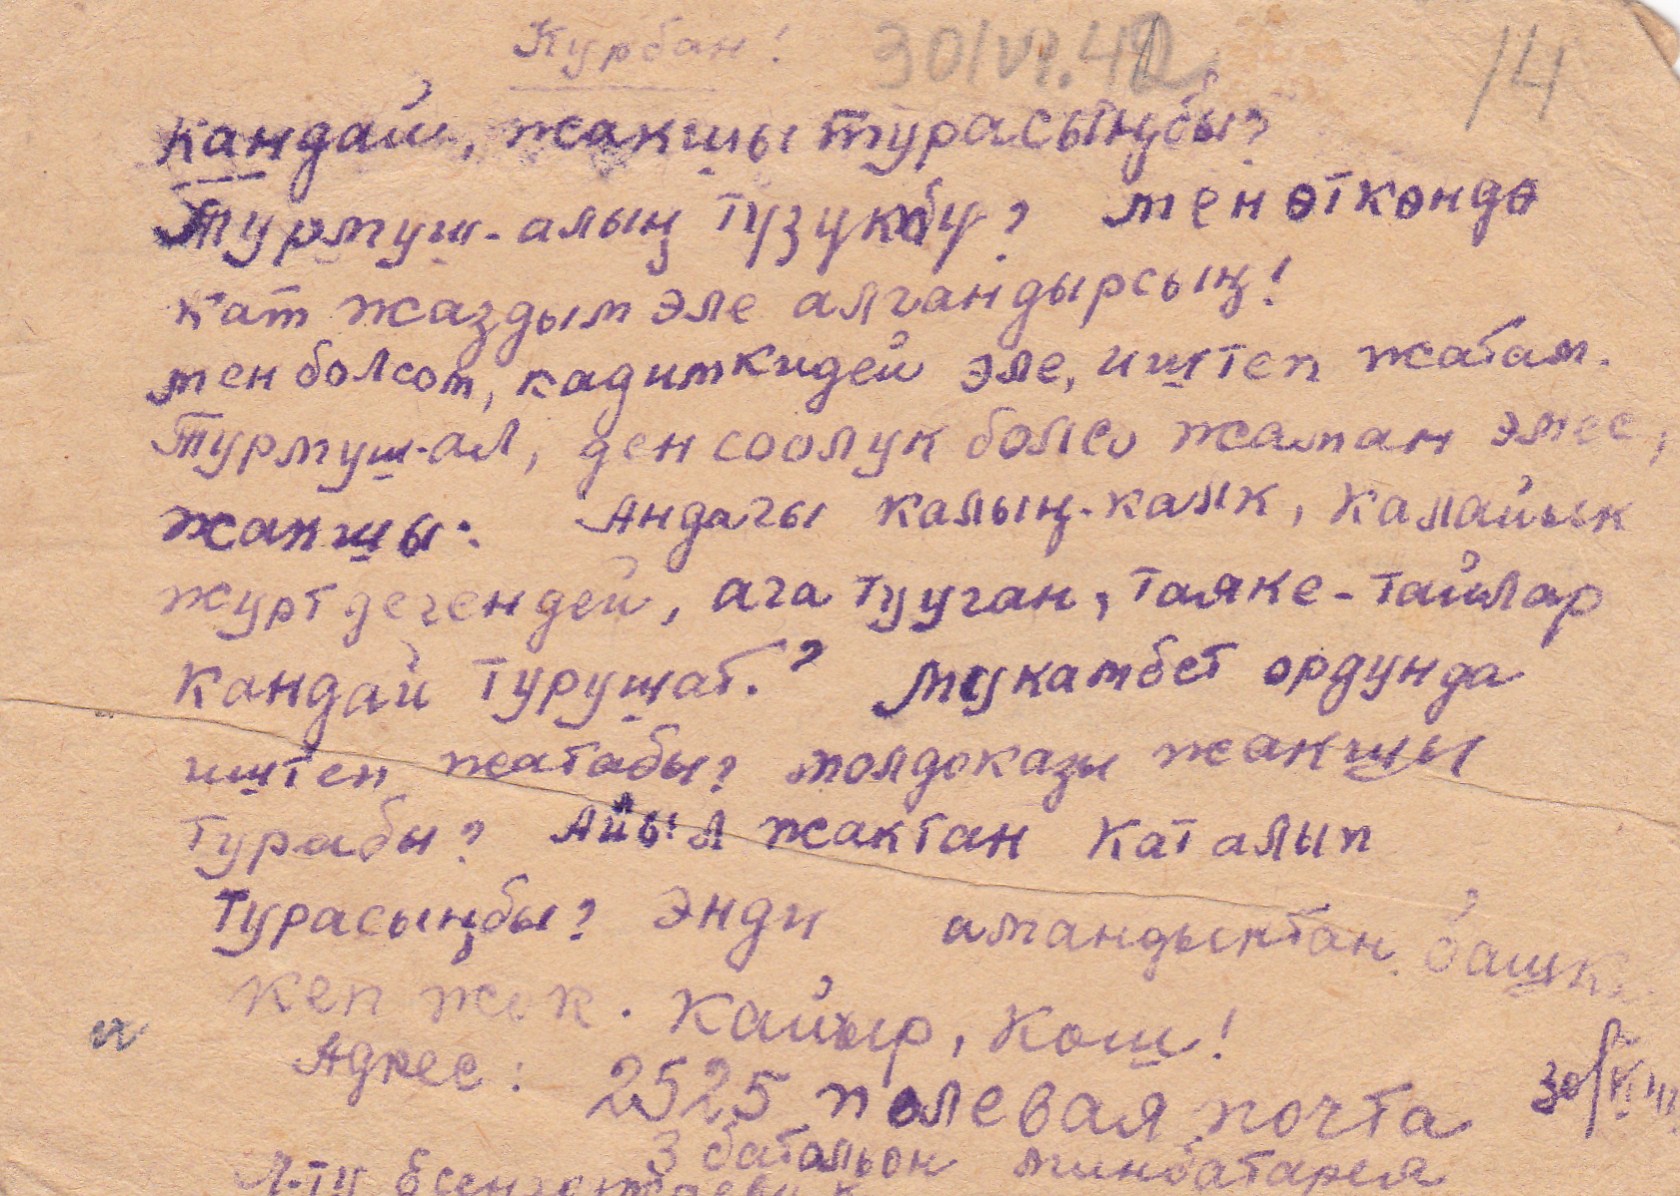 Курбан! 30/VI.42 14
Кандай, жакшы турасыңбы?
Турмуш-алың түзүкбү? Мен өткөндө
кат жаздым эле алгандырсың!
Мен болсом, кадимкидей эле, иштеп жатам.
Турмуш-ал, денсоолук болсо жаман эмес,
жакшы. Андагы калың-калк, калайык
журт дегендей, ага тууган, таяке-тайлар
кандай турушат? Мукамбет ордунда
иштеп жатабы? Молдоказы жакшы
турабы? Айыл жактан кат алып
турасыңбы? Энди амандыктан башка
кеп жок. Кайыр, кош!
Адрес: 2525 полевая почта 30/VI
3 батальон минбатарея
Л-ту